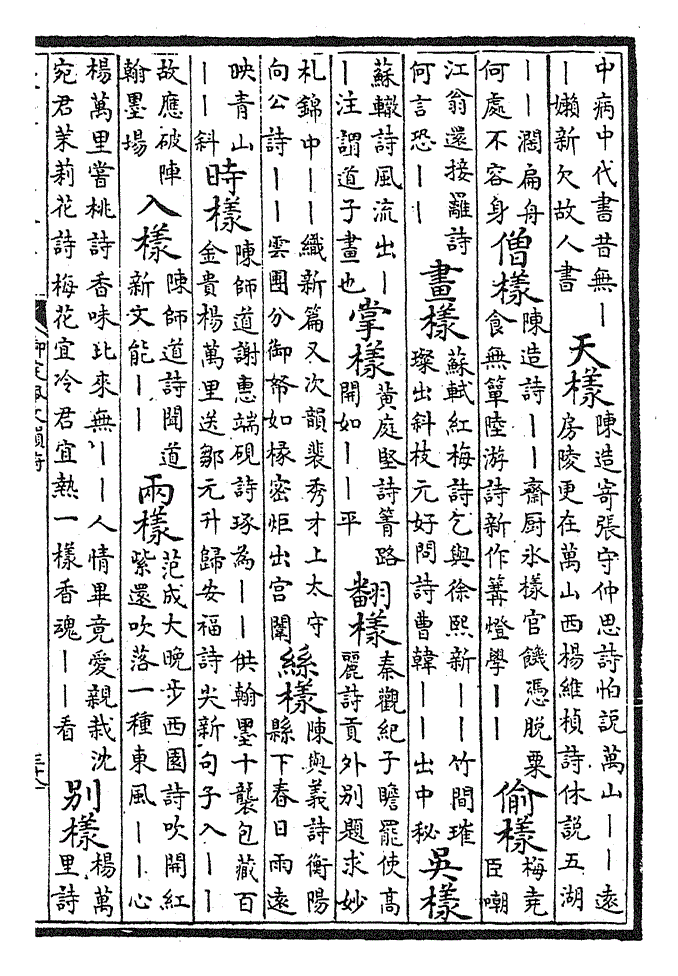 中病中代書昔無｜｜嬾新欠故人書 天樣 陳造寄張守仲思詩怕說萬山｜｜遠房陵更在萬山西楊維楨詩休說五湖
｜｜濶扁舟何處不容身 僧樣 陳造詩｜｜齋厨氷樣官饑憑脫粟食無簞陸游詩新作篝燈學｜｜ 偷樣 梅堯臣嘲
江翁還接䍦詩何言恐｜｜ 畫樣 蘇軾紅梅詩乞與徐熙新｜｜竹間璀璨出斜枝元好問詩曹韓｜｜出中秘 吳樣
蘇轍詩風流出｜｜注謂道子畫也 掌樣 黃庭堅詩箐路開如｜｜平 翻樣 秦觀紀子瞻罷使高麗詩貢外別題求妙
札錦中｜｜織新篇又次韻裴秀才上太守向公詩｜｜雲團分御帑如椽密炬出宫闈 絲樣 陳與義詩衡陽縣下春日雨遠
映青山｜｜斜 時樣 陳師道謝惠端硯詩琢為｜｜供翰墨十襲包藏百金貴楊萬里送鄒元升歸安福詩尖新句子入｜｜
故應破陣翰墨場 入樣 陳師道詩聞道新文能｜｜ 兩樣 范成大晚步西園詩吹開紅紫還吹落一種東風｜｜心
楊萬里嘗桃詩香味比來無｜｜人情畢竟愛親栽沈宛君茉莉花詩梅花宜冷君宜熱一樣香魂｜｜看 別樣 楊萬里詩